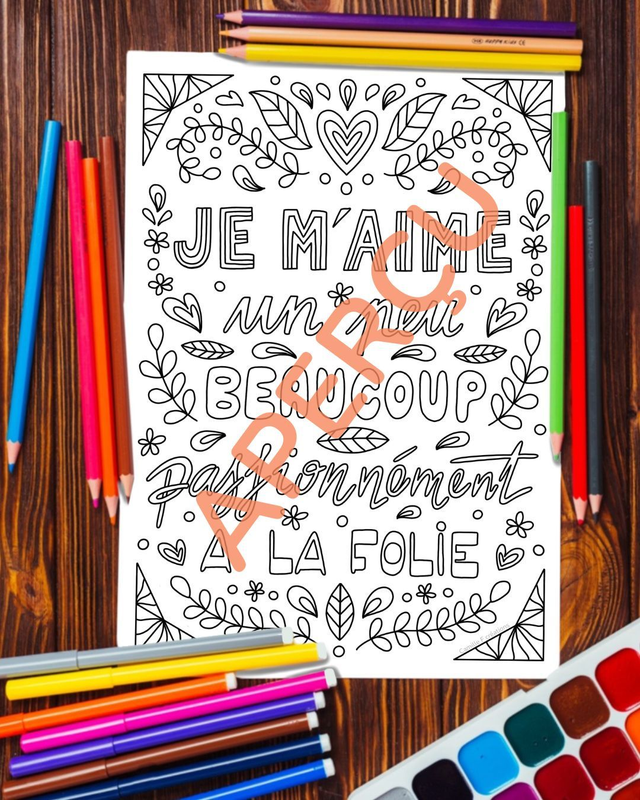 JE M'AIME
un peu
BEAUCOUP
passionnément
A LA FOLIE
APERÇU